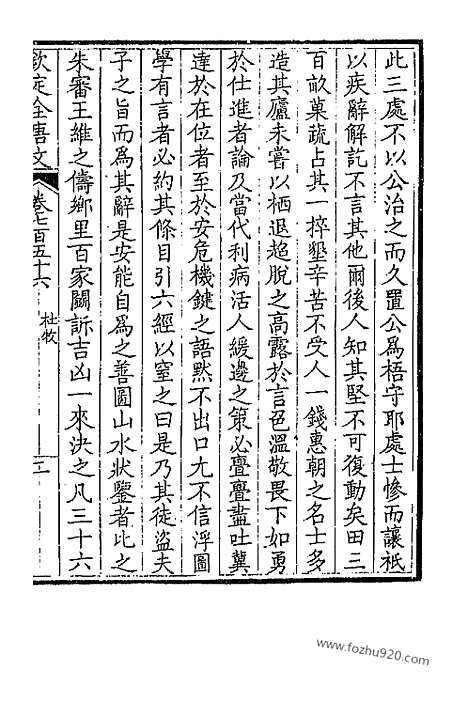 此三處不以公治之而久置公為梧守耶處士慘而讓祗
以疾辭解訖不言其他爾後人知其堅不可復動矣田三
百畝菓蔬占其一捽墾辛苦不受人一錢惠朝之名士多
造其廬未嘗以栖退超脫之高露於言色溫敬畏下如勇
於仕進者論及當代利病活人緩邊之策必亹亹盡吐冀
達於在位者至於安危機鍵之語默不出口尤不信浮圖
學有言者必約其條目引六經以窒之曰是乃其徒盜夫
子之旨而為其辭是安能自為之善圖山水狀鑒者比之
朱審王維之儔鄉里百家鬬訴吉凶一來決之凡三十六
欽定全唐文 卷七百五十六 杜牧 二
www.fozhu920.com